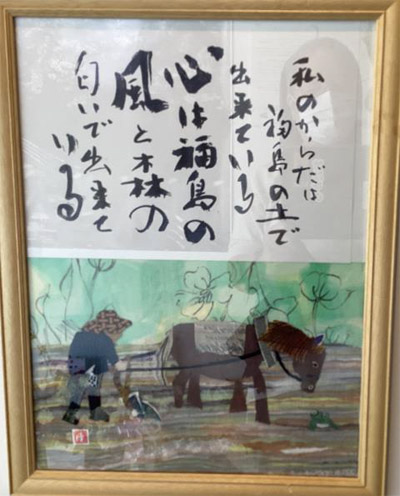 私のからだは
福島の土で
出来ている
心は福島の
風と森の
匂いで出来て
いる